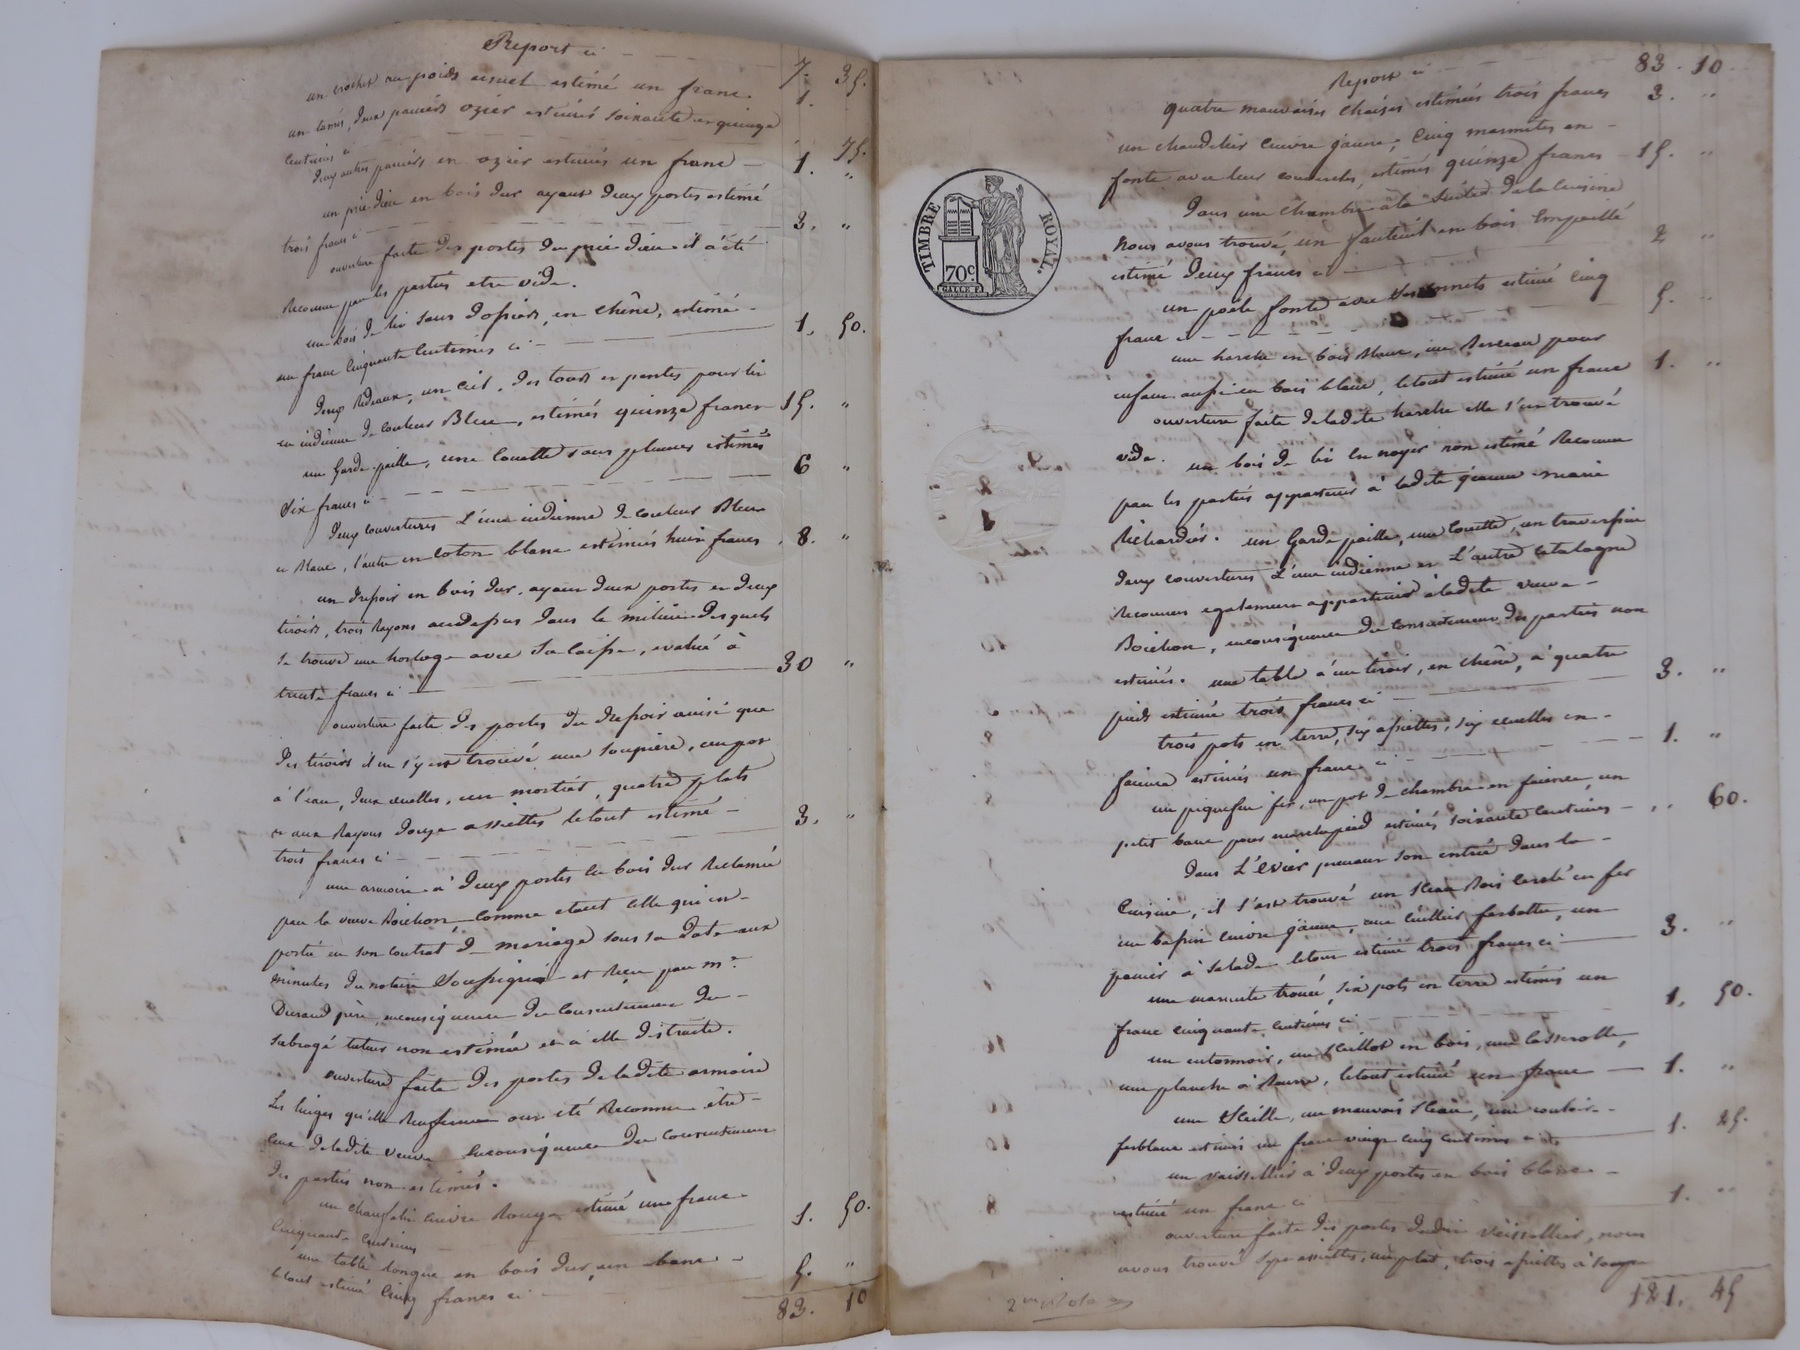 Report ci 7. 35.
un crochet ou poids usuel estimé un franc 1. "
un tamis, deux paniers ozier estimés soixante et quinze
centimes ci 75.
deux autres paniers en ozier estimés un franc 1. "
un prie-dieu en bois dur ayant deux portes estimé
trois francs ci 3. "
ouverture faite des portes du prie dieu il a été
Reconnu par les parties etre vide.
un bois de lit sans dossier, en chêne, estimé
un franc cinquante centimes ci 1. 50.
deux Rideaux, un ciel, des tours et pentes pour lit
en indienne de couleur Bleue, estimés quinze francs 15. "
une Garde-paille, une Couette sans plumes estimés
Six francs ci 6 "
deux couvertures L'une indienne de couleur Bleue
et Blanc, l'autre en coton blanc estimées huit francs 8. "
un drepoir en bois dur, ayant deux portes et deux
tiroirs, trois Rayons audessus dans le milieu desquels
se trouve une horloge avec sa caisse, evalué à
trente francs ci 30 "
ouverture faite des portes du drepoir ainsi que
des tiroirs il en s'y est trouvé une soupière, un pot
à l'eau, deux ecuelles, un mortier, quatre plats
et aux Rayons douze assiettes le tout estimé
trois francs ci 3. "
une armoire à deux portes en bois dur Reclamée
par la veuve Boichon, comme etant celle qui im-
portée en son contrat de mariage sous sa date aux
minutes du notaire Soussigné et Reçu par Mr
Durand père, enconséquence du Consentement du
subrogé tuteur non estimée et à elle distraite.
ouverture faite des portes de ladite armoire
Les linges qu'elle Renferme ont été Reconnu être
ceux de ladite veuve enconséquence du consentement
des parties non estimés.
un chandelier cuivre Rouge estimé un franc
cinquante centimes 1. 50.
une table longue en bois dur, un banc
le tout estimé cinq francs ci 5. "
83. 10
Report ci 83. 10
quatre mauvaises chaises estimées trois francs 3. "
un chandelier cuivre jaune, Cinq marmites en
fonte avec leur couvercles, estimés quinze francs 15. "
Dans une chambre à la Suite de la Cuisine
Nous avons trouvé, un fauteuil en bois Empaillé
estimé deux francs ci 2 "
un poêle fonte avec ses cornets estimé Cinq
franc ci 5. "
une harche en bois blanc, un berceau pour
enfant aussi en bois blanc, le tout estimé un franc 1. "
ouverture faite de ladite harche elle s'est trouvé
vide. un bois de lit en noyer non estimé Reconnu
par les parties appartenir à ladite jeanne marie
Richardier. un Garde paille, une Couette, un traversin
deux couvertures L'une indienne et L'autre catalogne
Reconnus egalement appartenir à ladite veuve
Boichon, enconséquence du Consentement des parties non
estimés. une table à un tiroir, en chêne, à quatre
pieds estimée trois francs ci 3. "
trois pots en terre, six assiettes, six ecuelles en
faience estimés un franc ci 1. "
un piquefeu fer, un pot de chambre en faience, un
petit banc pour marchepied estimés soixante centimes " 60.
Dans L'évier prenant son entrée dans la
Cuisine, il s'est trouvé un Seau Bois cerclé en fer
un bassin cuivre jaune, une cuillier ferbatte, un
panier à Salade le tout estimé trois francs ci 3. "
une marmite trouée, six pots en terre estimés un
franc cinquante centimes ci 1. 50.
un entonnoir, un seillot en bois, une Casserolle,
une planche à beurre, le tout estimé un franc 1. "
une Seille, un mauvais Seau, une couloir
ferblanc estimés un franc vingt cinq centimes ci 1. 25.
un vaissellier à deux portes en bois blanc
estimé un franc ci 1. "
ouverture faite des portes dudit vaissellier, nous
avons trouvé sept assiettes, un plat, trois assiettes à soupe
121. 45
2me Role
TIMBRE ROYAL.
70c